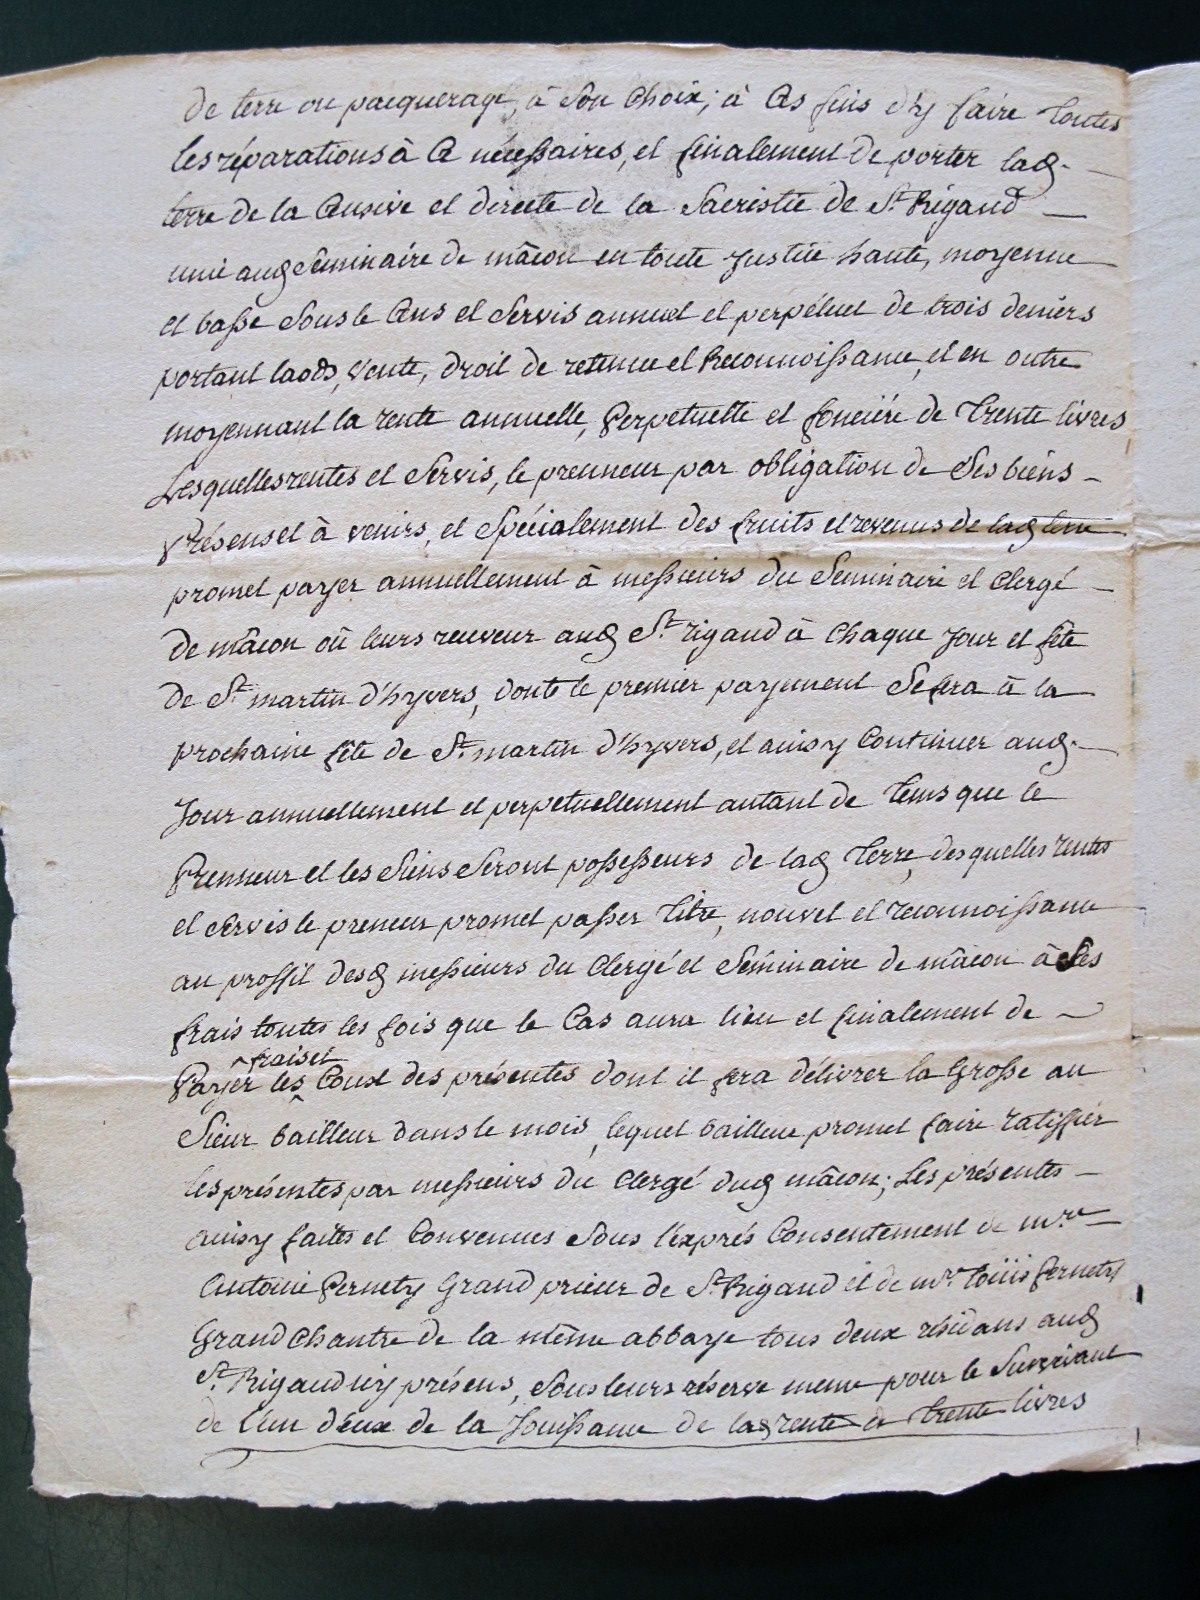 de terre ou pacquerage, à son Choix; à Ces fins d'y faire toutes
les réparations à Ce nécessaires, et finalement de porter lad.
terre de la Censive et directe de la Sacristie de St. Rigaud
unie aud Séminaire de mâcon en toute Justice haute, moyenne
et basse Sous le Cens et Servis annuel et perpétuel de trois deniers
portant laods, vente, droit de retenue et Reconnoissance, et en outre
moyennant la rente annuelle, perpetuelle et fonciére de trente livres
Lesquelles rentes et Servis, le prenneur par obligation de Ses biens
présens et à venirs, et Spécialement des fruits et revenus de lad terre
promet payer annuellement à messieurs du Seminaire et Clergé
de mâcon où leurs receveur aud St. rigaud à Chaque Jour et fête
de St. martin d'hyvers, dont le premier payement Se fera à la
prochaine fête de St. martin d'hyvers, et ainsy Continuer aud.
Jour annuellement et perpetuellement autant de tems que le
Prenneur et les Siens Seront possesseurs de lad terre, desquelles rentes
et Servis le preneur promet passer titre, nouvel et reconnoissance
au proffit desd messieurs du Clergé et Séminaire de mâcon à Ses
frais toutes les fois que le Cas aura lieu et finalement de
^ frais et
Payer les Coust des présentes dont il fera délivrer la Grosse au
Sieur bailleur dans le mois, lequel bailleur promet faire ratiffier
les présentes par messieurs du Clergé dud mâcon; Les présentes
ainsy faites et Convenues Sous l'exprés Consentement de mre
Antoine Pernety Grand prieur de St. Rigaud et de mre. loüis Pernety
Grand Chantre de la même abbaye tous deux résidans aud
St. Rigaud icy présens, Sous leurs réserve meme pour le Survivant
de l'un deux de la Jouissance de lad rente de trente livres